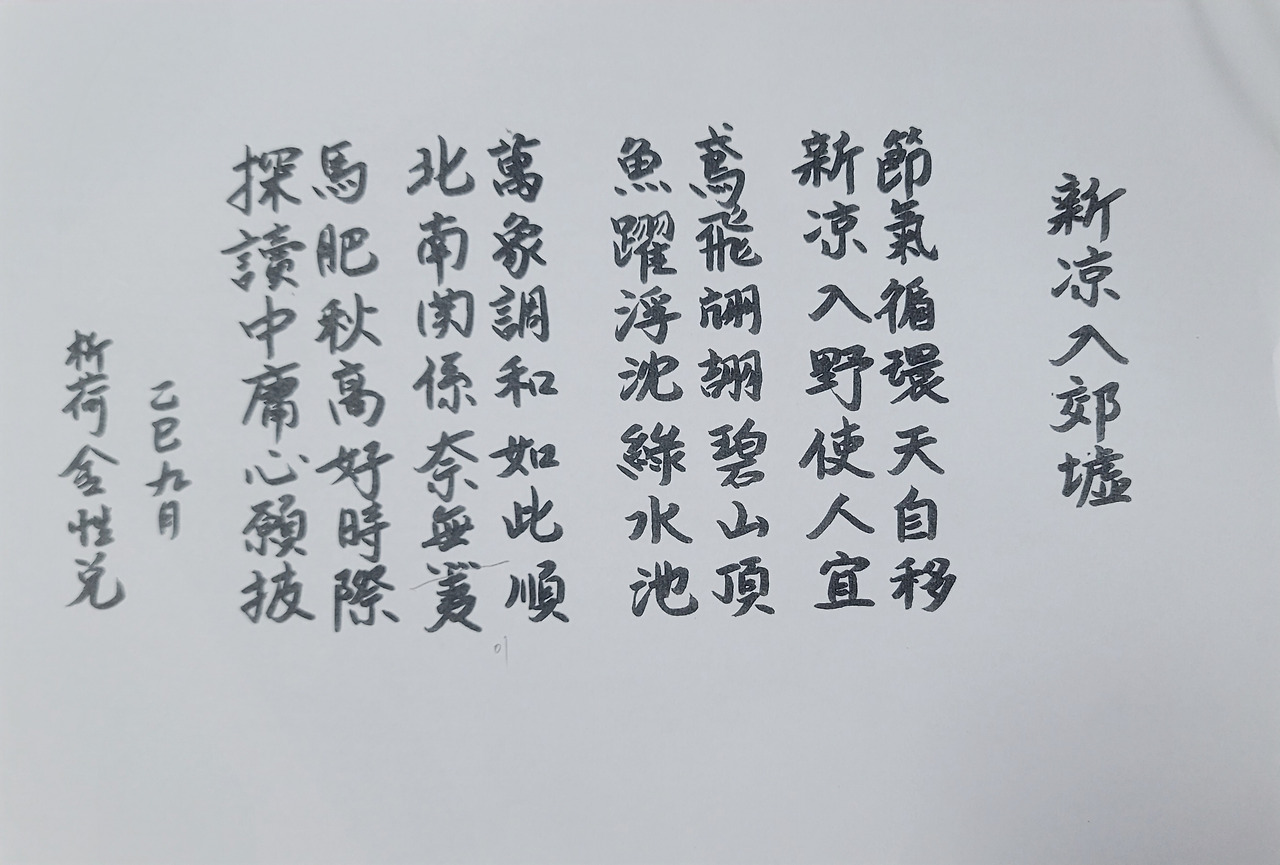 新凉入郊墟
節氣循環天自移
新凉入野使人宜
鳶飛翩翩碧山頂
魚躍浮沈綠水池
萬象調和如此順
北南関係奈無
이
馬肥秋高好時際
探讀中庸心願披
乙巳九月
荷 金性兌